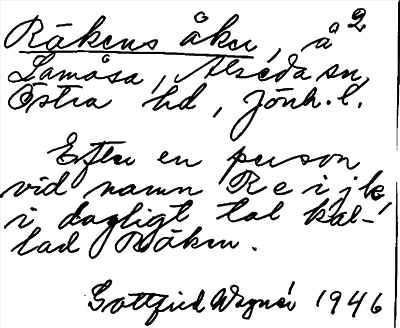 Räkens åker, å 2
Lamåsa, Alseda sn,
Östra hd, Jönk. l.
Efter en person
vid namn Reijk,
i dagligt tal kal-
lad Räken.
Gottfrid Wagnér 1946